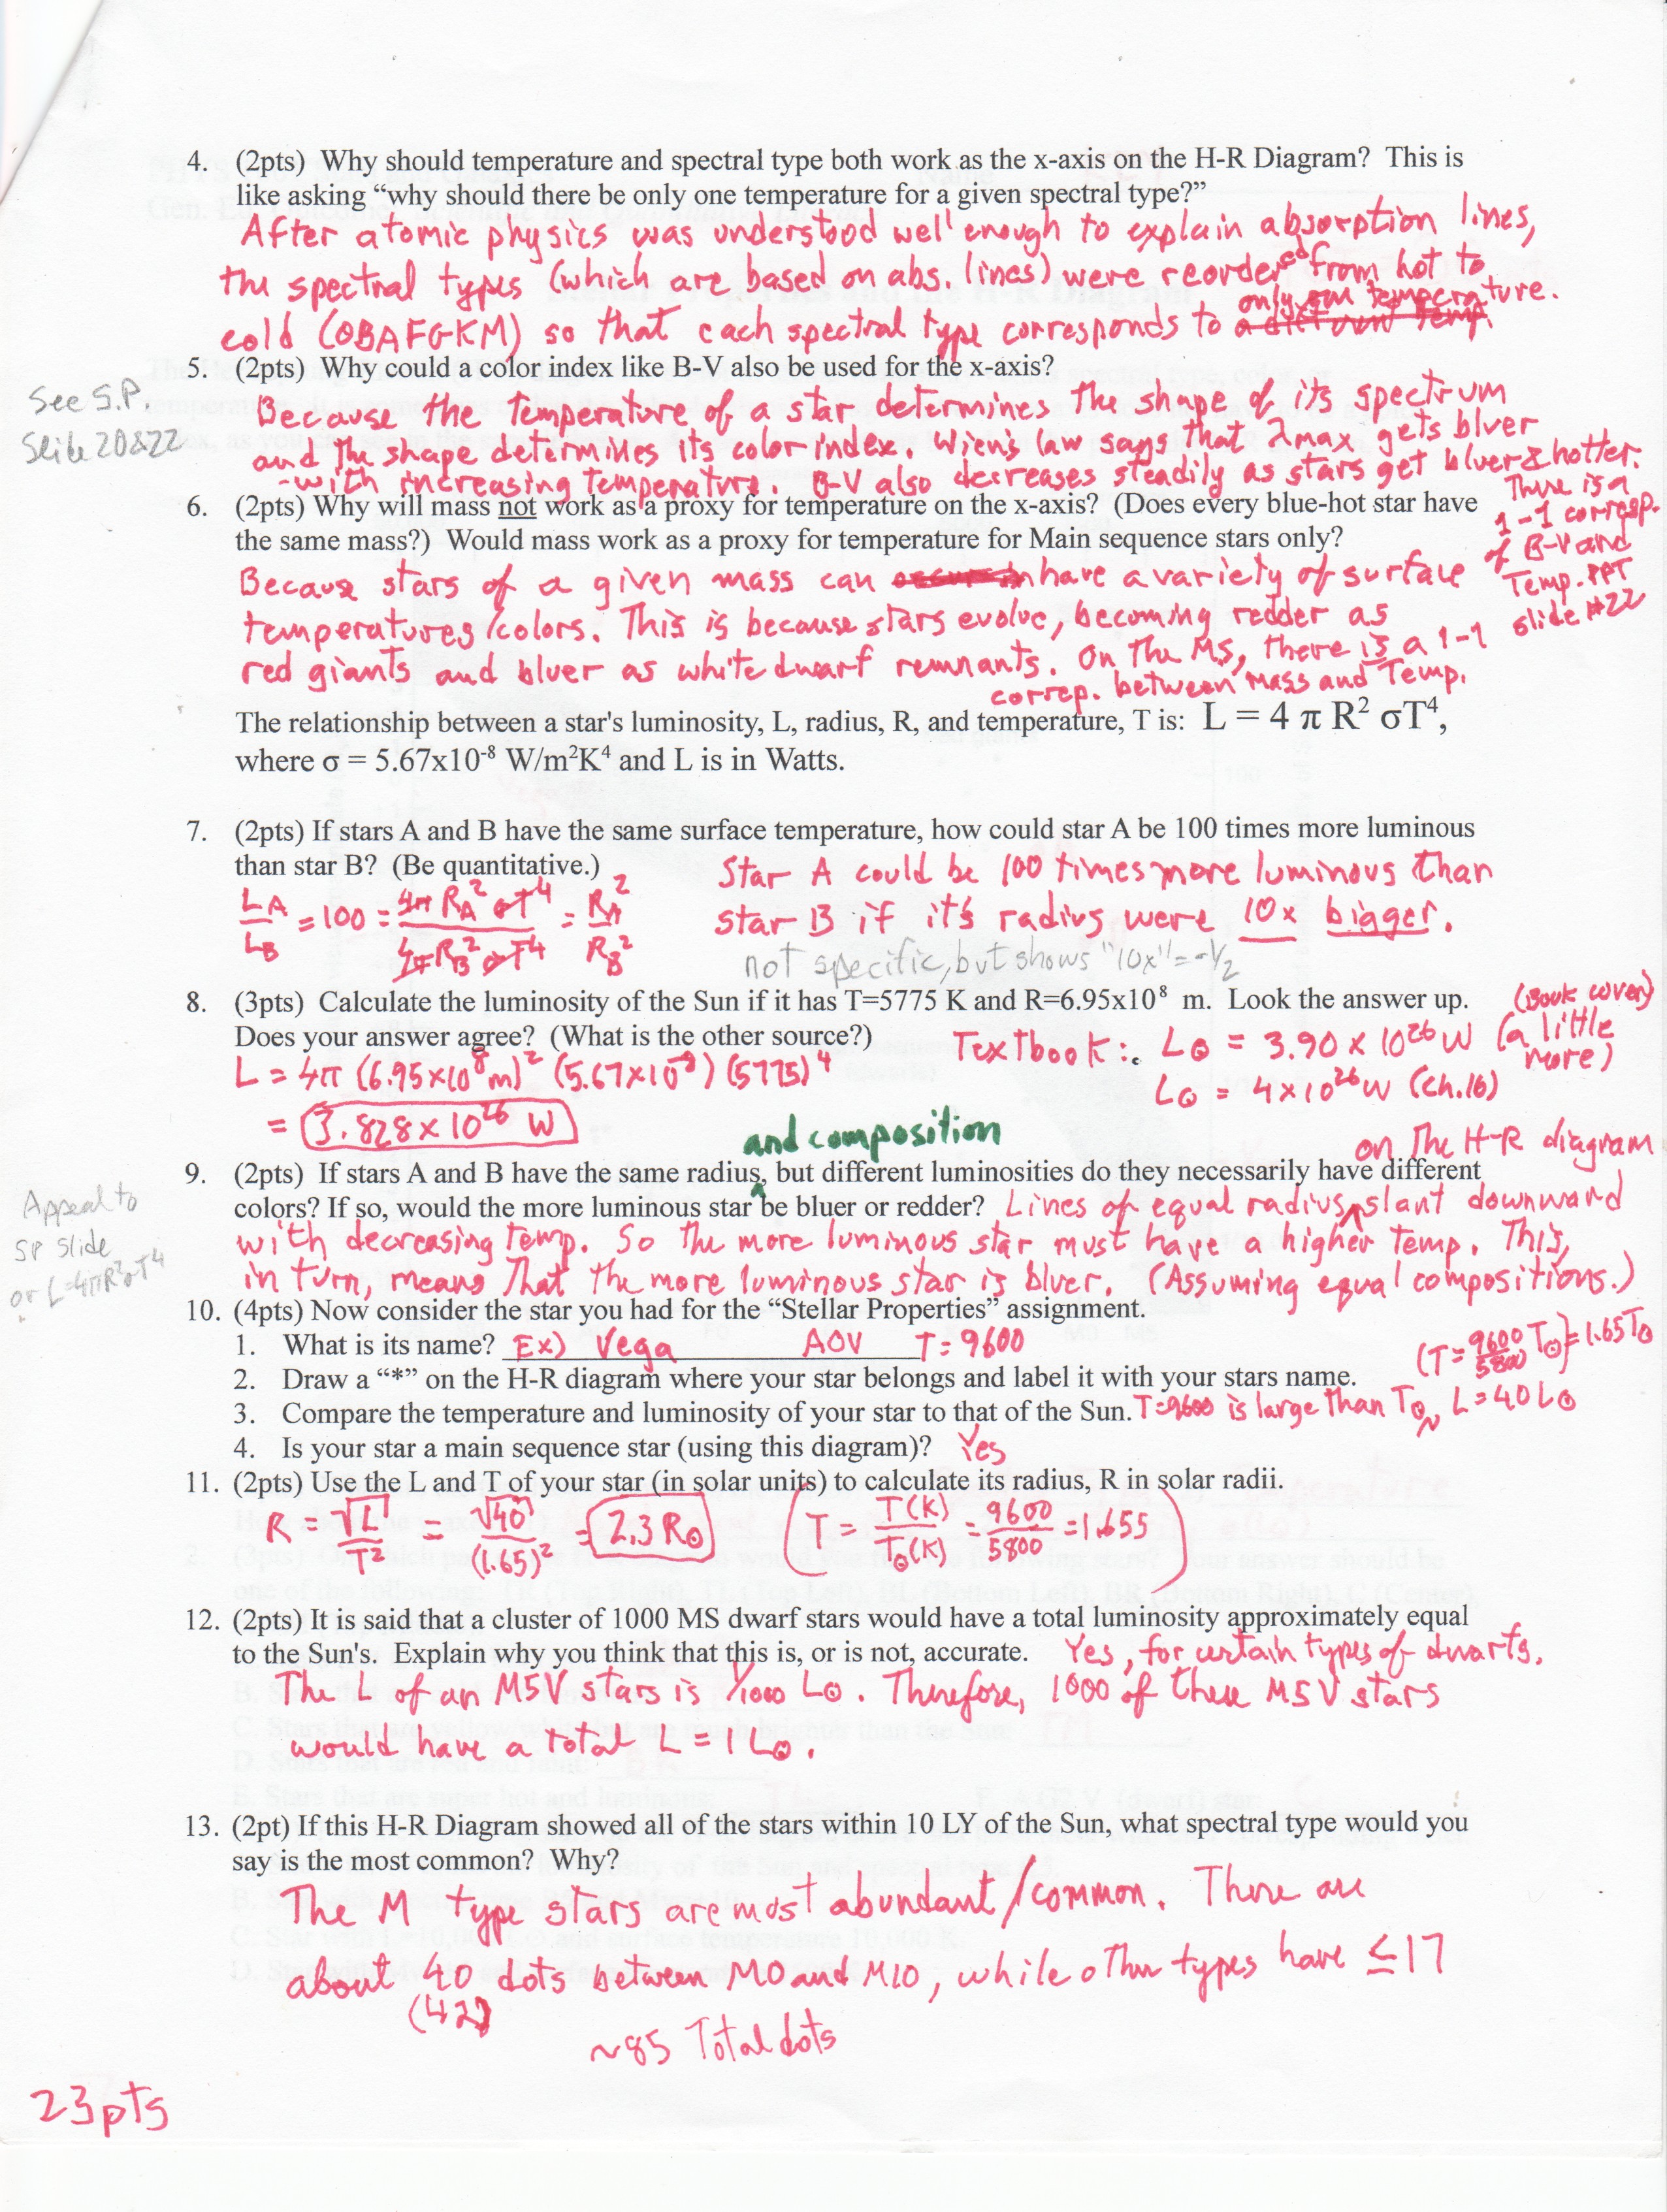 4. (2pts) Why should temperature and spectral type both work as the x-axis on the H-R Diagram? This is
like asking “why should there be only one temperature for a given spectral type?”
After atomic physics was understood well enough to explain absorption lines,
the spectral types (which are based on abs. lines) were reordered from hot to
cold (OBAFGKM) so that each spectral type corresponds to only one temperature.
5. (2pts) Why could a color index like B-V also be used for the x-axis?
See S.P.
Slide 20&22
Because the temperature of a star determines the shape of its spectrum
and the shape determines its color index. Wien's law says that λmax gets bluer
-with increasing temperature. B-V also decreases steadily as stars get bluer & hotter.
There is a
1-1 corresp.
of B-V and
Temp. PPT
slide #22
6. (2pts) Why will mass not work as a proxy for temperature on the x-axis? (Does every blue-hot star have
the same mass?) Would mass work as a proxy for temperature for Main sequence stars only?
Because stars of a given mass can have a variety of surface
temperatures/colors. This is because stars evolve, becoming redder as
red giants and bluer as white dwarf remnants. On the MS, there is a 1-1
correp. between mass and Temp.
The relationship between a star's luminosity, L, radius, R, and temperature, T is: L = 4 π R² σT⁴,
where σ = 5.67x10⁻⁸ W/m²K⁴ and L is in Watts.
7. (2pts) If stars A and B have the same surface temperature, how could star A be 100 times more luminous
than star B? (Be quantitative.)
Star A could be 100 times more luminous than
star B if it's radius were 10x bigger.
L_A/L_B = 100 = 4π R_A² σT⁴ / 4π R_B² σT⁴ = R_A² / R_B²
not specific, but shows "10x" = -1/2
8. (3pts) Calculate the luminosity of the Sun if it has T=5775 K and R=6.95x10⁸ m. Look the answer up.
Does your answer agree? (What is the other source?)
Textbook: L⊙ = 3.90 x 10²⁶ W
(Book cover)
(a little
more)
L⊙ = 4x10²⁶ W (ch.16)
L = 4π (6.95x10⁸m)² (5.67x10⁻⁸) (5775)⁴
= 3.828x10²⁶ W
and composition
9. (2pts) If stars A and B have the same radius, but different luminosities do they necessarily have different
colors? If so, would the more luminous star be bluer or redder?
on the H-R diagram
Lines of equal radius slant downward
with decreasing temp. So the more luminous star must have a higher temp. This,
in turn, means that the more luminous star is bluer. (Assuming equal compositions.)
Appeal to
SP slide
or L=4πR²σT⁴
10. (4pts) Now consider the star you had for the “Stellar Properties” assignment.
1. What is its name? Ex) Vega A0V T=9600
(T = 9600/5800 T⊙) = 1.65T⊙
2. Draw a “*” on the H-R diagram where your star belongs and label it with your stars name.
3. Compare the temperature and luminosity of your star to that of the Sun. T=9600 is large than T⊙, L=40L⊙
4. Is your star a main sequence star (using this diagram)? Yes
11. (2pts) Use the L and T of your star (in solar units) to calculate its radius, R in solar radii.
R = √L / T² = √40 / (1.65)² = 2.3 R⊙ (T = T(K) / T⊙(K) = 9600/5800 = 1.655)
12. (2pts) It is said that a cluster of 1000 MS dwarf stars would have a total luminosity approximately equal
to the Sun's. Explain why you think that this is, or is not, accurate. Yes, for certain types of dwarfs.
The L of an M5V stars is 1/1000 L⊙. Therefore, 1000 of these M5V stars
would have a total L = 1L⊙.
13. (2pt) If this H-R Diagram showed all of the stars within 10 LY of the Sun, what spectral type would you
say is the most common? Why?
The M type stars are most abundant/common. There are
about 40 dots between M0 and M10, while other types have ≤17
(42)
~85 Total dots
23pts